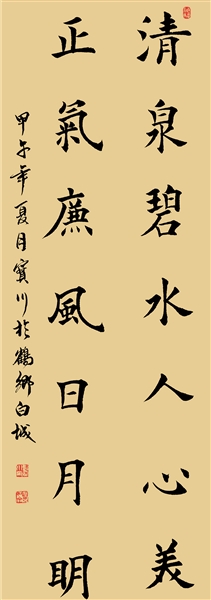 清泉碧水人心美
正氣廉風日月明
甲午年夏月寶川於鶴鄉白城